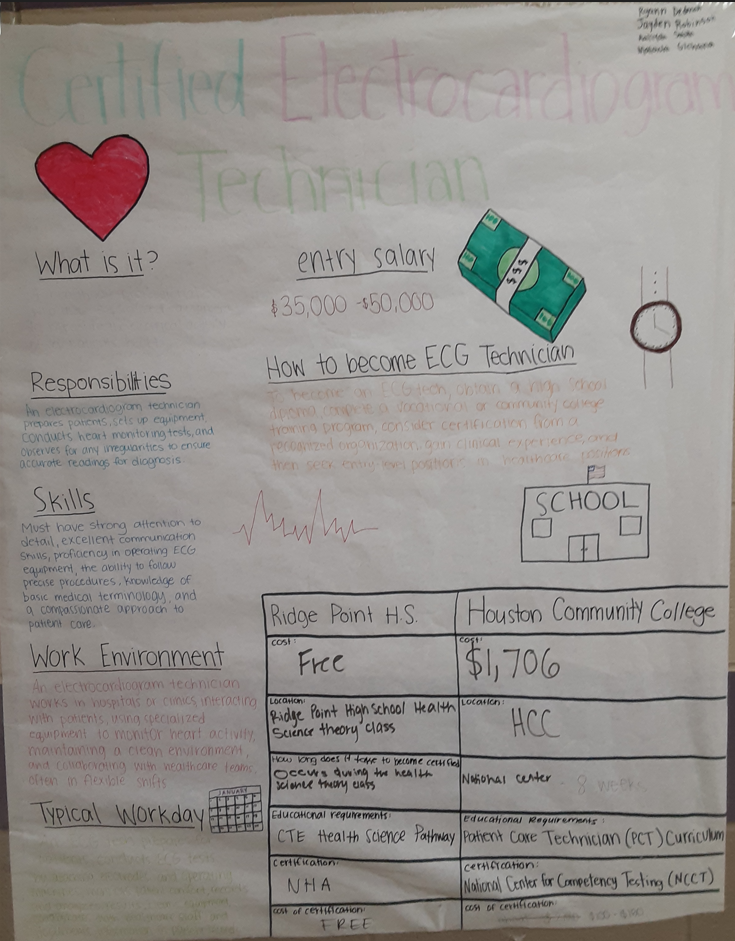 Jayden Robinson
Certified Electrocardiogram
Technician
What is it?
entry salary
$35,000 - $50,000
$$$
How to become ECG Technician
To become an ECG tech, obtain a high school
diploma complete a vocational or community college
training program, consider certification from a
recognized organization, gain clinical experience, and
then seek entry level positions in healthcare positions
Responsibilities
An electrocardiogram technician
prepares patients, sets up equipment,
conducts heart monitoring tests, and
observes for any irregularities to ensure
accurate readings for diagnosis
Skills
Must have strong attention to
detail, excellent communication
skills, proficiency in operating ECG
equipment, the ability to follow
precise procedures, knowledge of
basic medical terminology, and
a compassionate approach to
patient care.
SCHOOL
Work Environment
An electrocardiogram technician
works in hospitals or clinics, interacting
with patients, using specialized
equipment to monitor heart activity,
maintaining a clean environment,
and collaborating with healthcare teams,
often in flexible shifts
Typical Workday
JANUARY
conduct ECG tests
Ridge Point H.S.
Houston Community College
cost:
Free
cost:
$1,706
Location:
Ridge Point High School Health
Science theory class
Location:
HCC
How long does it take to become certified
Occurs during the health
science theory class
National center - 8 weeks
Educational requirements:
CTE Health Science Pathway
Educational Requirements:
Patient Care Technician (PCT) Curriculum
Certification:
NHA
certification:
National Center for Competency Testing (NCCT)
cost of certification:
FREE
cost of certification: